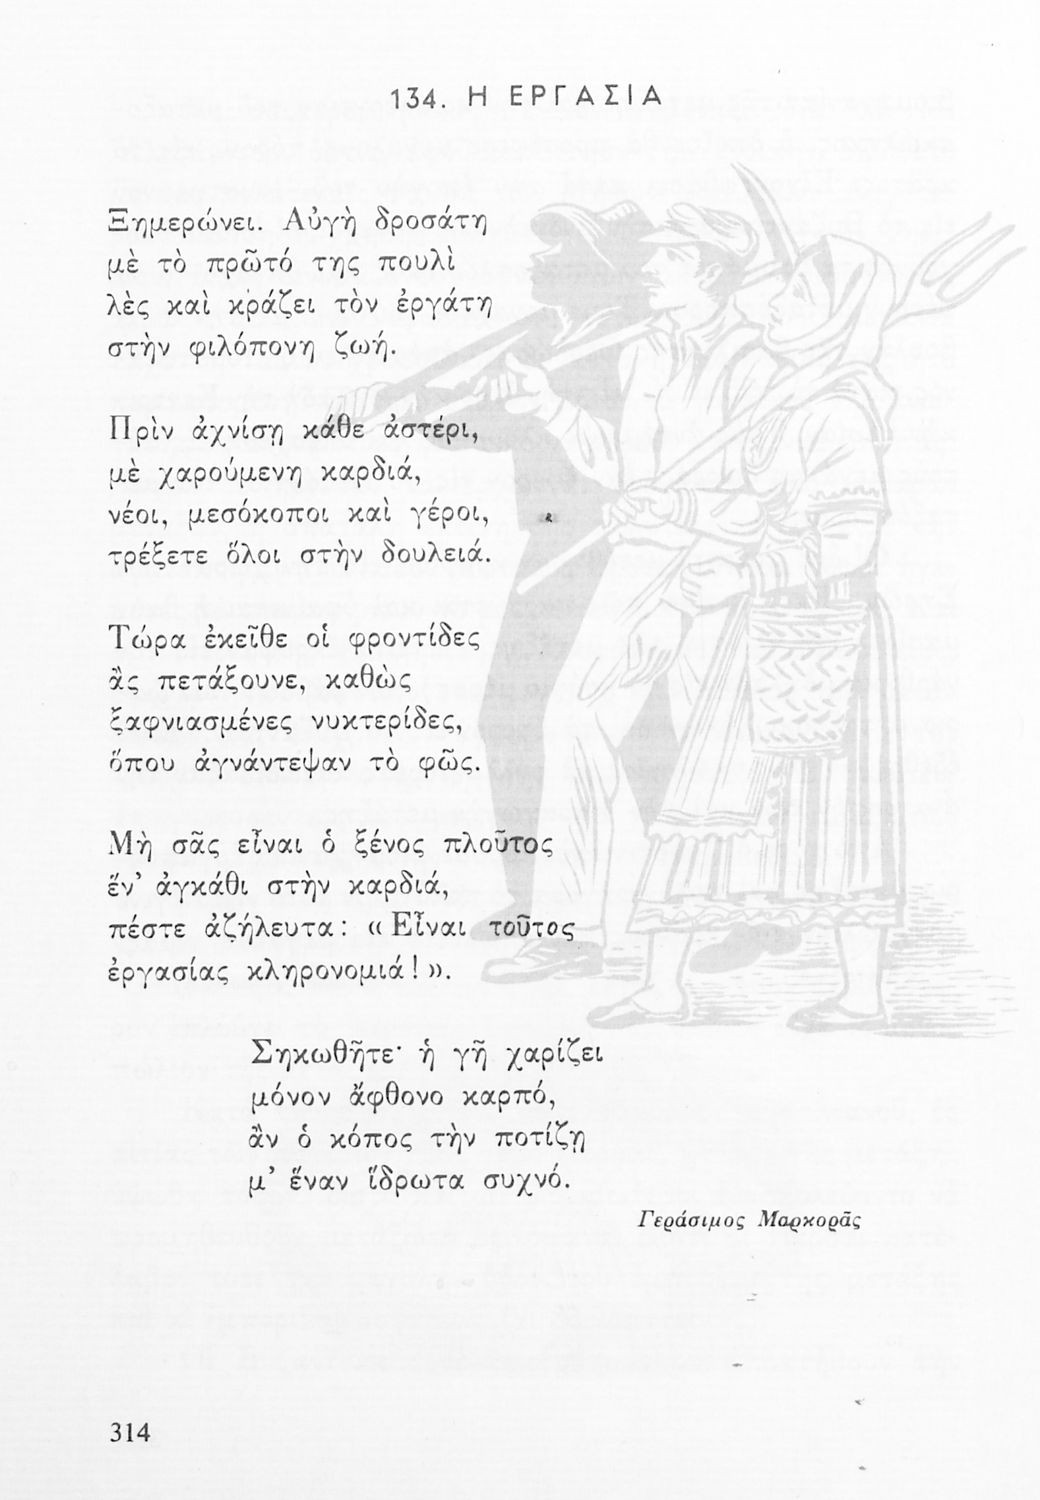 134. Η ΕΡΓΑΣΙΑ
Ξημερώνει. Αὐγὴ δροσάτη
μὲ τὸ πρῶτό της πουλὶ
λὲς καὶ κράζει τὸν ἐργάτη
στὴν φιλόπονη ζωή.
Πρὶν ἀχνίσῃ κάθε ἀστέρι,
μὲ χαρούμενη καρδιά,
νέοι, μεσόκοποι καὶ γέροι,
τρέξετε ὅλοι στὴν δουλειά.
Τώρα ἐκεῖθε οἱ φροντίδες
ἂς πετάξουνε, καθὼς
ξαφνιασμένες νυκτερίδες,
ὅπου ἀγνάντεψαν τὸ φῶς.
Μὴ σᾶς εἶναι ὁ ξένος πλοῦτος
ἕν’ ἀγκάθι στὴν καρδιά,
πέστε ἀζήλευτα: «Εἶναι τοῦτος
ἐργασίας κληρονομιά!».
Σηκωθῆτε· ἡ γῆ χαρίζει
μόνον ἄφθονο καρπό,
ἂν ὁ κόπος τὴν ποτίζῃ
μ’ ἕναν ἵδρωτα συχνό.
Γεράσιμος Μαρκορᾶς
314